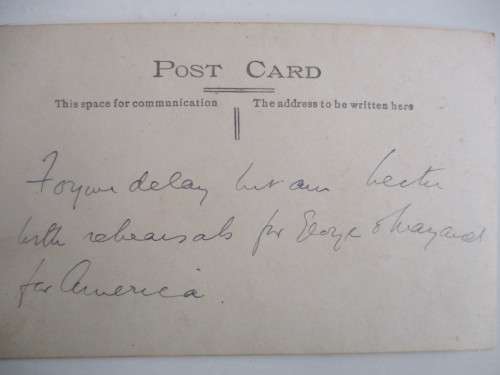 POST CARD
This space for communication The address to be written here
Forgive delay but am hectic
with rehearsals for George & Margaret
for America.